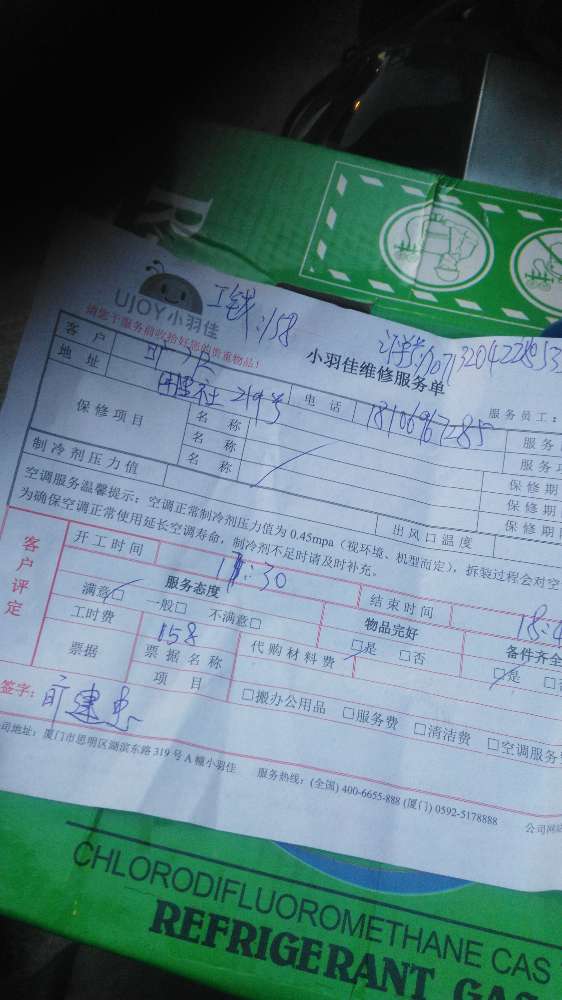 UJOY小羽佳
工钱:158
请您于服务前收拾好您的贵重物品!
小羽佳维修服务单
服务员工:
客 户
电 话 18106967285
服务
地 址
服务项
保修项目 名 称
保修期
名 称
保修期
名 称
保修期
制冷剂压力值
出风口温度
空调服务温馨提示:空调正常制冷剂压力值为 0.45mpa(视环境、机型而定),拆装过程会对空
为确保空调正常使用延长空调寿命,制冷剂不足时请及时补充。
客户评定
开工时间 17:30
结束时间 18:4
服务态度
满意□ 一般□ 不满意□
物品完好
□是 □否
备件齐全
□是 □否
工时费 158
代购材料费
票据 票据名称
项 目
□搬办公用品 □服务费 □清洁费 □空调服务费
签字:
公司地址:厦门市思明区湖滨东路 319 号 A 幢小羽佳 服务热线:(全国) 400-6655-888 (厦门) 0592-5178888 公司网站
CHLORODIFLUOROMETHANE CAS
REFRIGERANT GAS